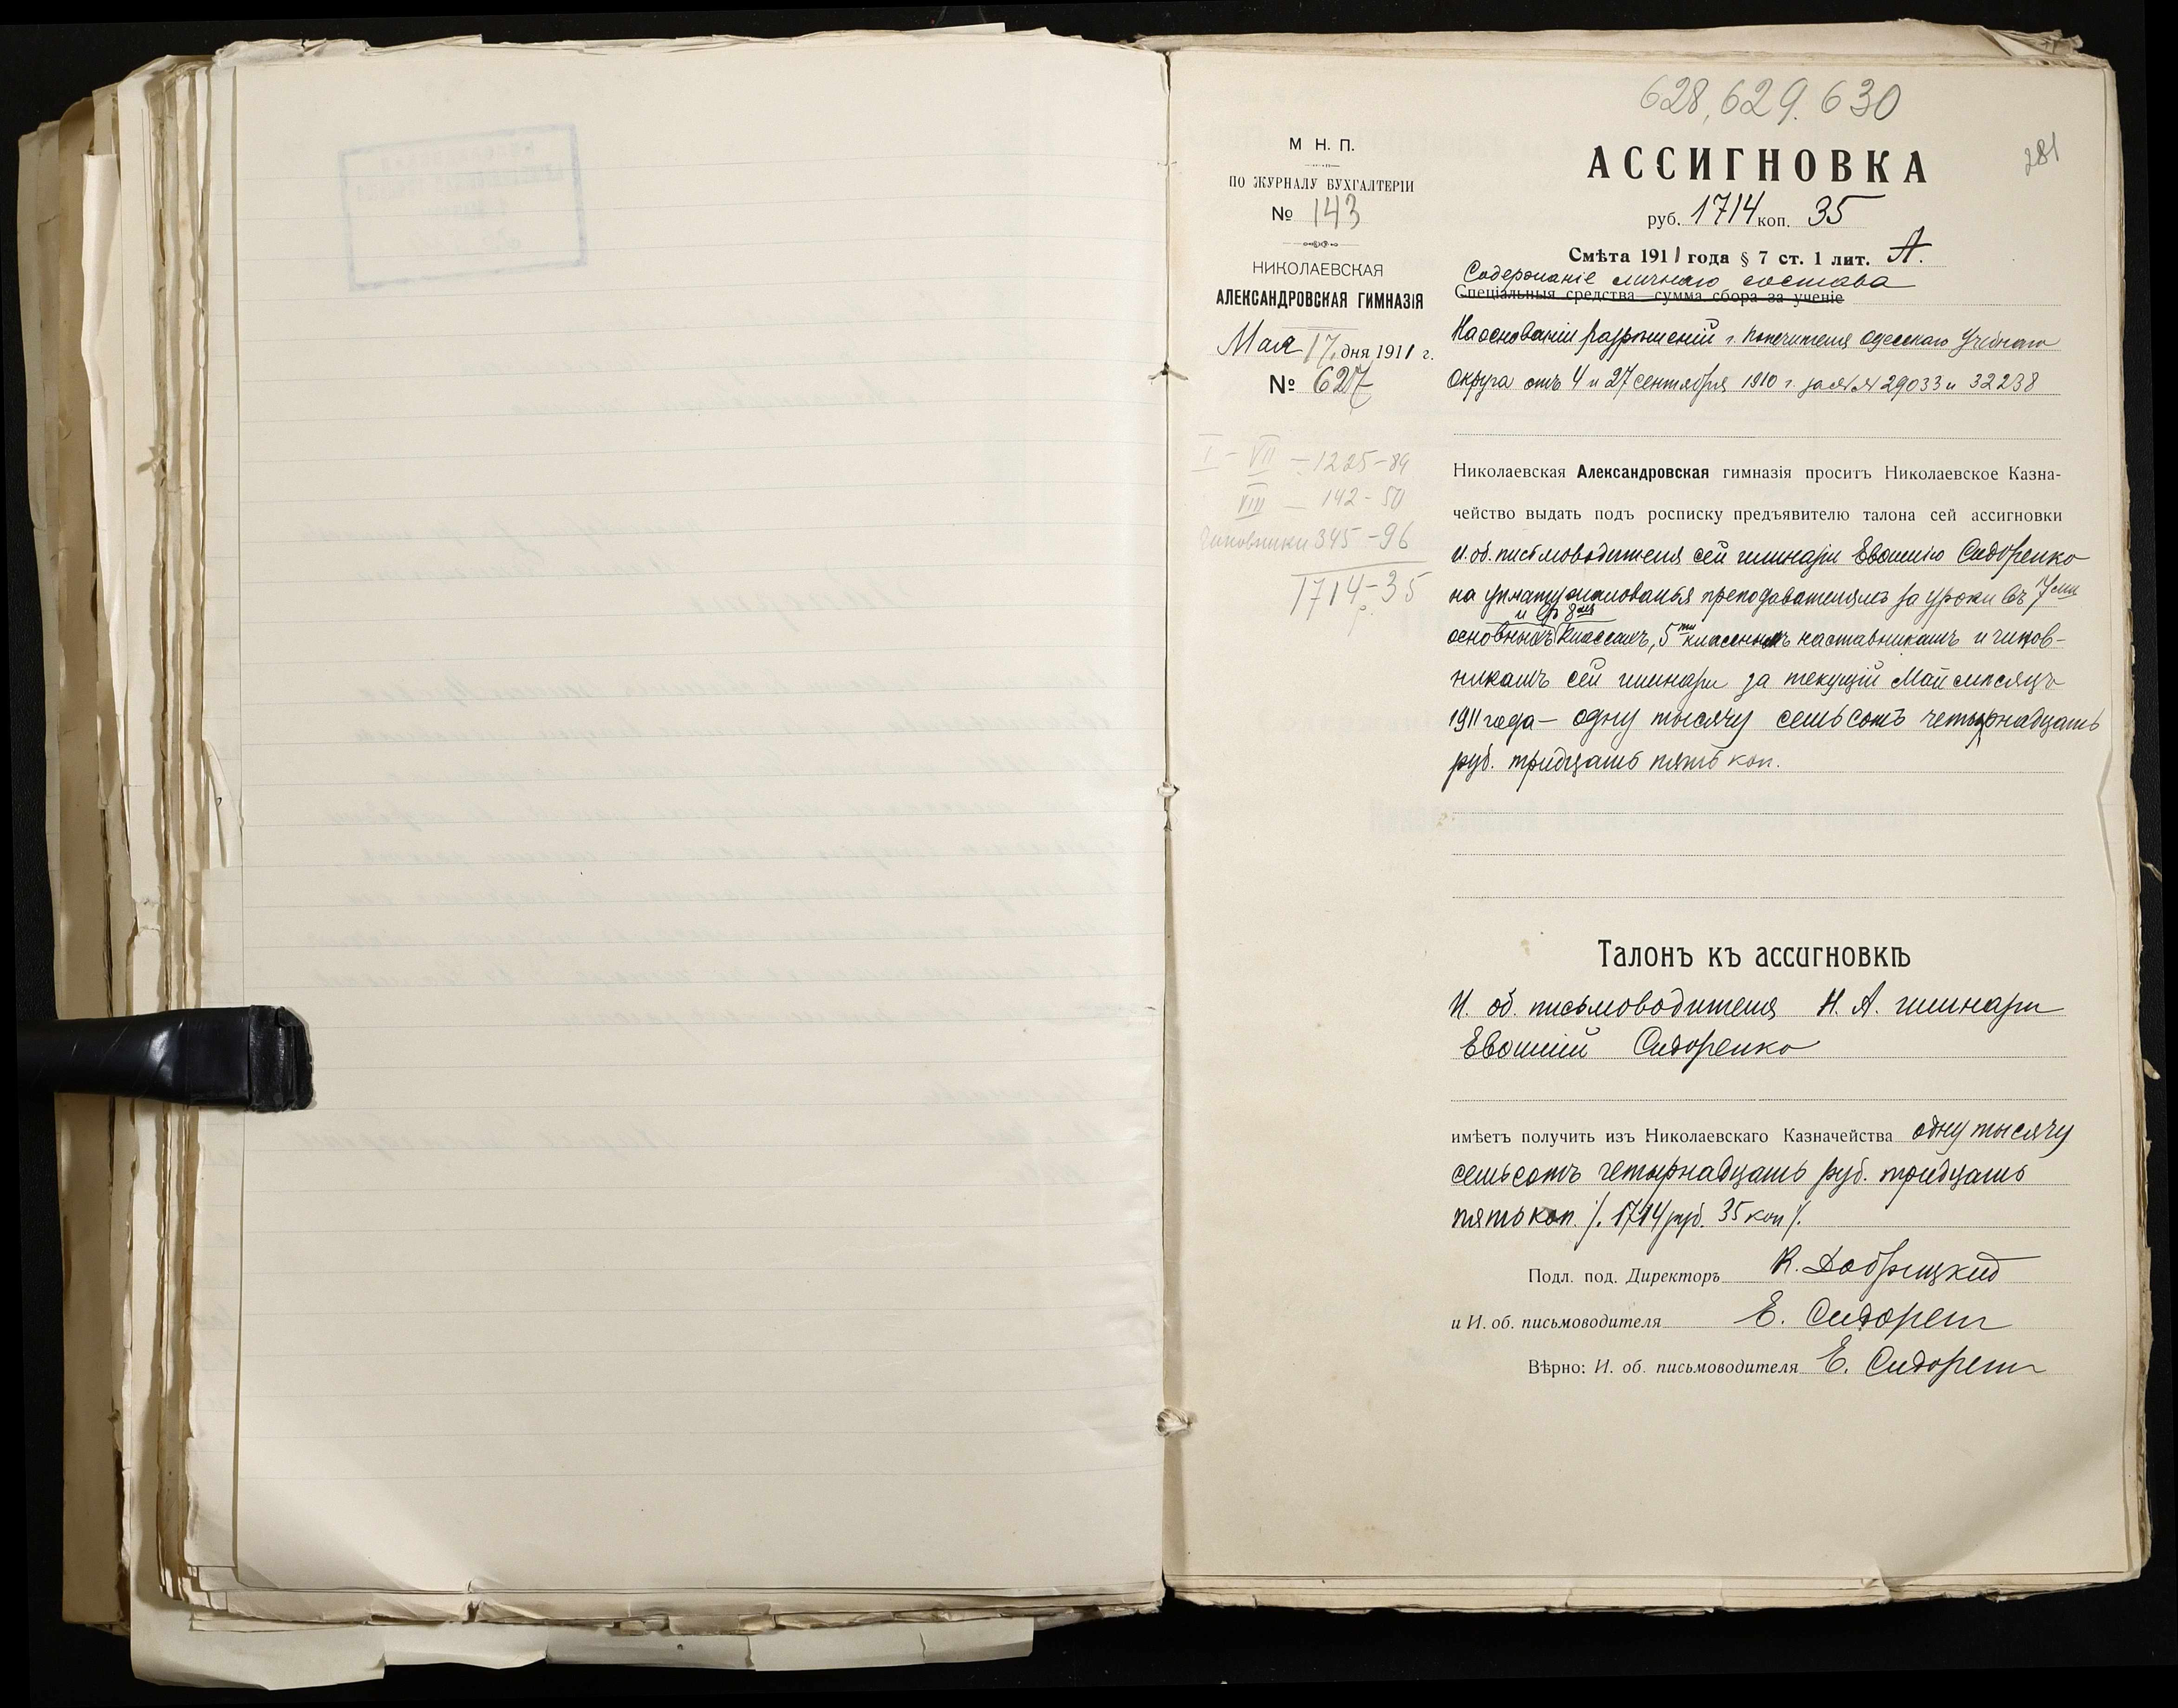 628, 629. 630
281
М. Н. П.
ПО ЖУРНАЛУ БУХГАЛТЕРІИ
№ 143
НИКОЛАЕВСКАЯ
АЛЕКСАНДРОВСКАЯ ГИМНАЗІЯ
Мая 17 дня 1911 г.
№ 627
I - VII - 1225-89
VIII - 142-50
Чиновники 345-96
1714-35
АССИГНОВКА
руб. 1714 коп. 35
Смѣта 1911 года § 7 ст. 1 лит. А.
Содержаніе личнаго состава
Спеціальныя средства сумма сбора за ученіе
На основаніи разрѣшеній г. Попечителя Одесскаго Учебнаго
Округа отъ 4 и 27 сентября 1910 г. за №№ 29033 и 32238
Николаевская Александровская гимназія проситъ Николаевское Казна-
чейство выдать подъ росписку предъявителю талона сей ассигновки
И. об. письмоводителя сей гимназіи Сидоренко
на уплату жалованья преподавателямъ за уроки въ 7 сми
и въ 8 мъ
основныхъ классахъ, 5 ти класснымъ наставникамъ и чинов-
никамъ сей гимназіи за текущій Май мѣсяцъ
1911 года - одну тысячу семьсотъ четырнадцать
руб. тридцать пять коп.
Талонъ къ ассигновкѣ
И. об. письмоводителя Н. А. гимназіи
Сидоренко
имѣетъ получить изъ Николаевскаго Казначейства одну тысячу
семьсотъ четырнадцать руб. тридцать
пять коп. /. 1714 руб. 35 коп /.
Подл. под. Директоръ К.
и И. об. письмоводителя Е. Сидорен
Вѣрно: И. об. письмоводителя Е. Сидорен